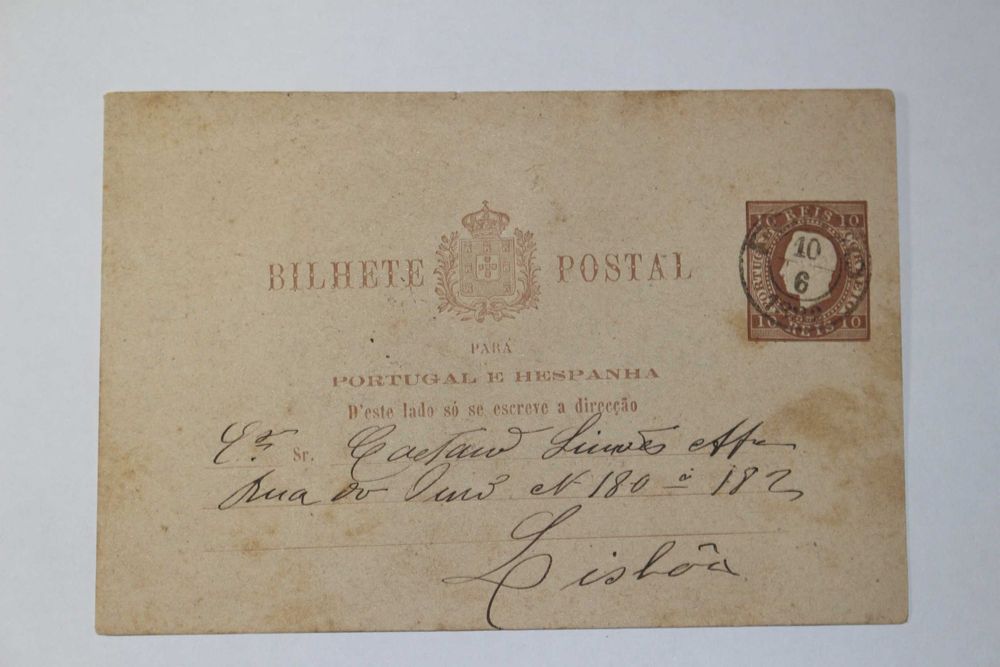 BILHETE POSTAL
PARA
PORTUGAL E HESPANHA
D'este lado só se escreve a direcção
Sr. Caetano Simões Aff.
Rua do Ouro N 180 a 182
Lisbôa
10 REIS 10
PORTUGAL CORREIO
10 REIS 10
10
6